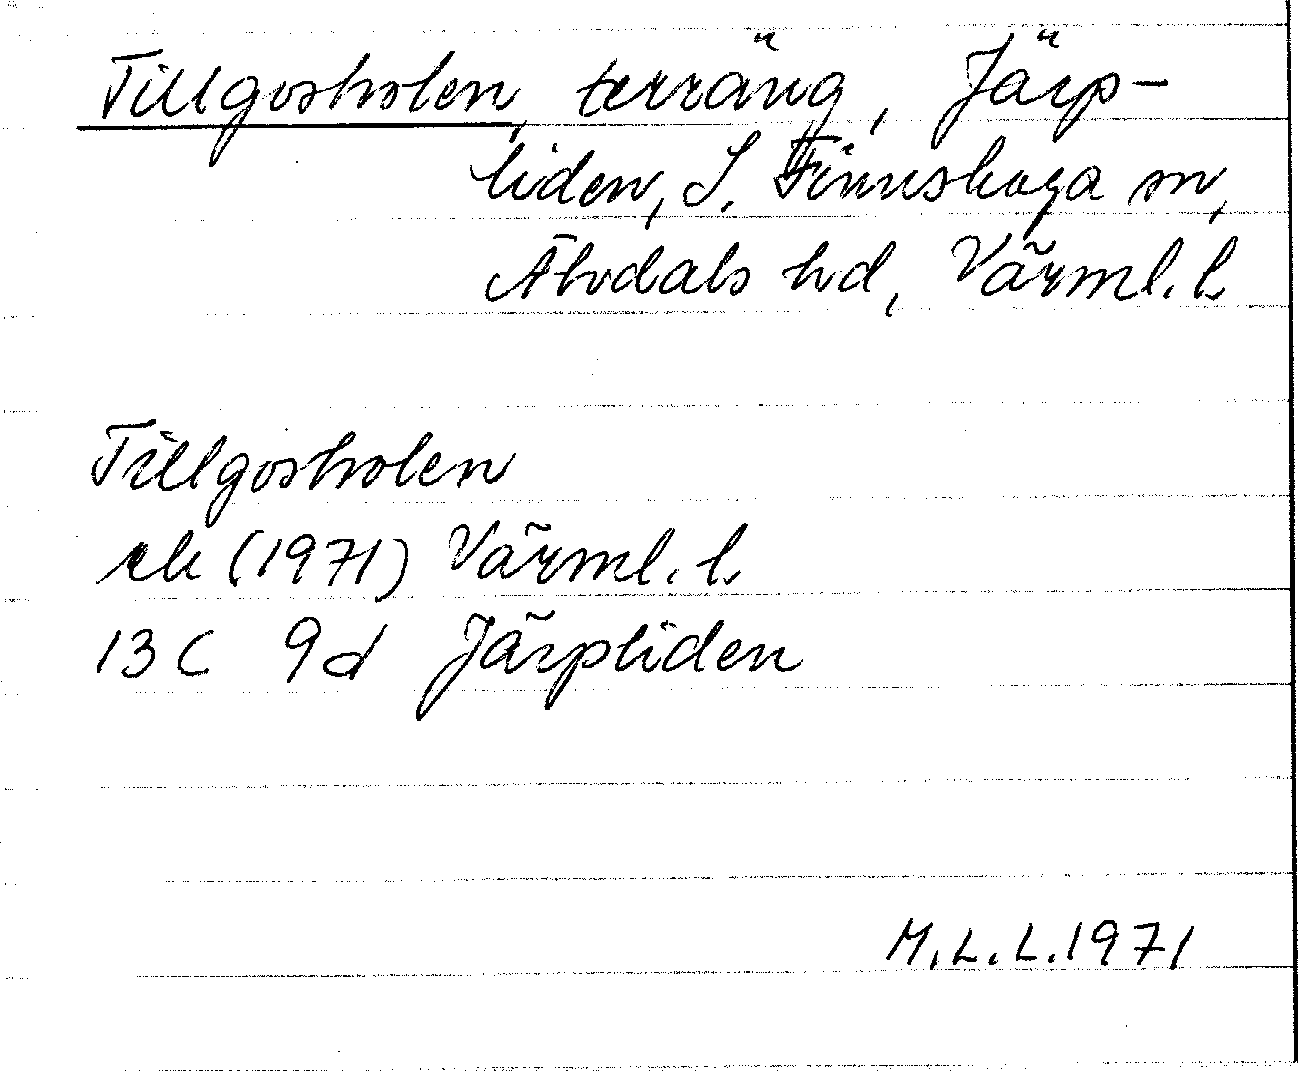 Tillgosholen, terräng, Järp-
liden, S. Finnskoga sn,
Älvdals hd, Värml. l.
Tillgosholen
ek (1971) Värml. l.
13 C 9d Järpliden
M.L.L. 1971